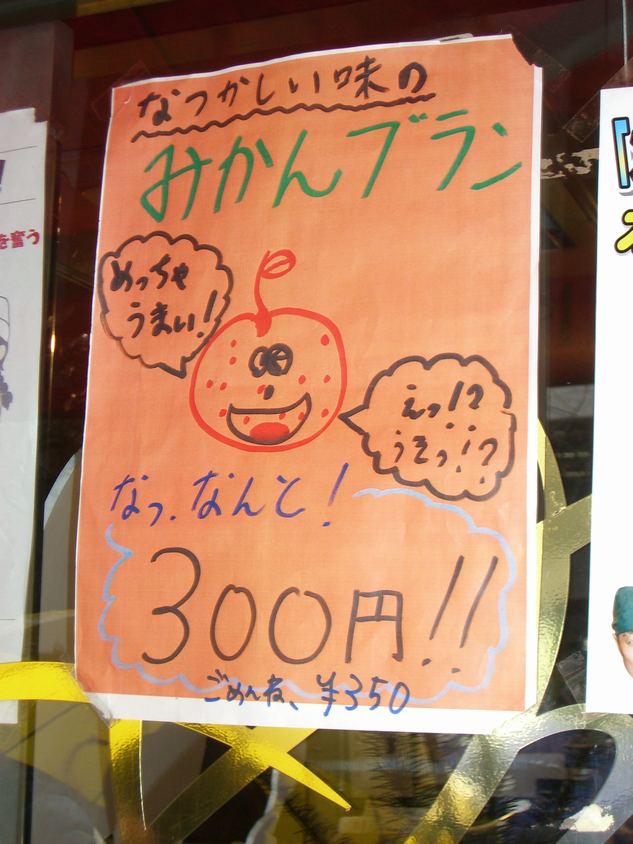 なつかしい味の
みかんブラン
めっちゃ
うまい!
えっ!?
うそっ!?
なっ.なんと!
300円!!
ごめんね、¥350
を奮う